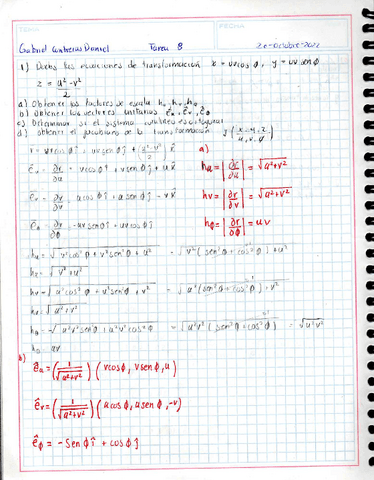 TEMA
FECHA
Gabriel Contreras Daniel Tarea 8 20-Octubre-2022
1) Dadas las ecuaciones de transformación x = uv cos φ, y = uv sen φ
z = u² - v² / 2
a) Obtener los factores de escala hu, hv, hφ
b) Obtener los vectores unitarios êu, êv, êφ
c) Determinar si el sistema es ortogonal
d) Obtener el jacobiano de la transformación J( x, y, z / u, v, φ )
r = uv cos φ î + uv sen φ ĵ + (u² - v² / 2) k̂
a)
êu = ∂r/∂u = v cos φ î + v sen φ ĵ + u k̂ hu = |∂r/∂u| = √u²+v²
êv = ∂r/∂v = u cos φ î + u sen φ ĵ - v k̂ hv = |∂r/∂v| = √u²+v²
êφ = ∂r/∂φ = -uv sen φ î + uv cos φ ĵ hφ = |∂r/∂φ| = uv
hu = √v² cos² φ + v² sen² φ + u² = √v² (sen² φ + cos² φ) + u²
hu = √v² + u²
hv = √u² cos² φ + u² sen² φ + v² = √u² (sen² φ + cos² φ) + v²
hv = √u² + v²
hφ = √u² v² sen² φ + u² v² cos² φ = √u² v² (sen² φ + cos² φ) = √u² v²
hφ = uv
b)
êu = (1 / √u²+v²) (v cos φ, v sen φ, u)
êv = (1 / √u²+v²) (u cos φ, u sen φ, -v)
êφ = - Sen φ î + cos φ ĵ